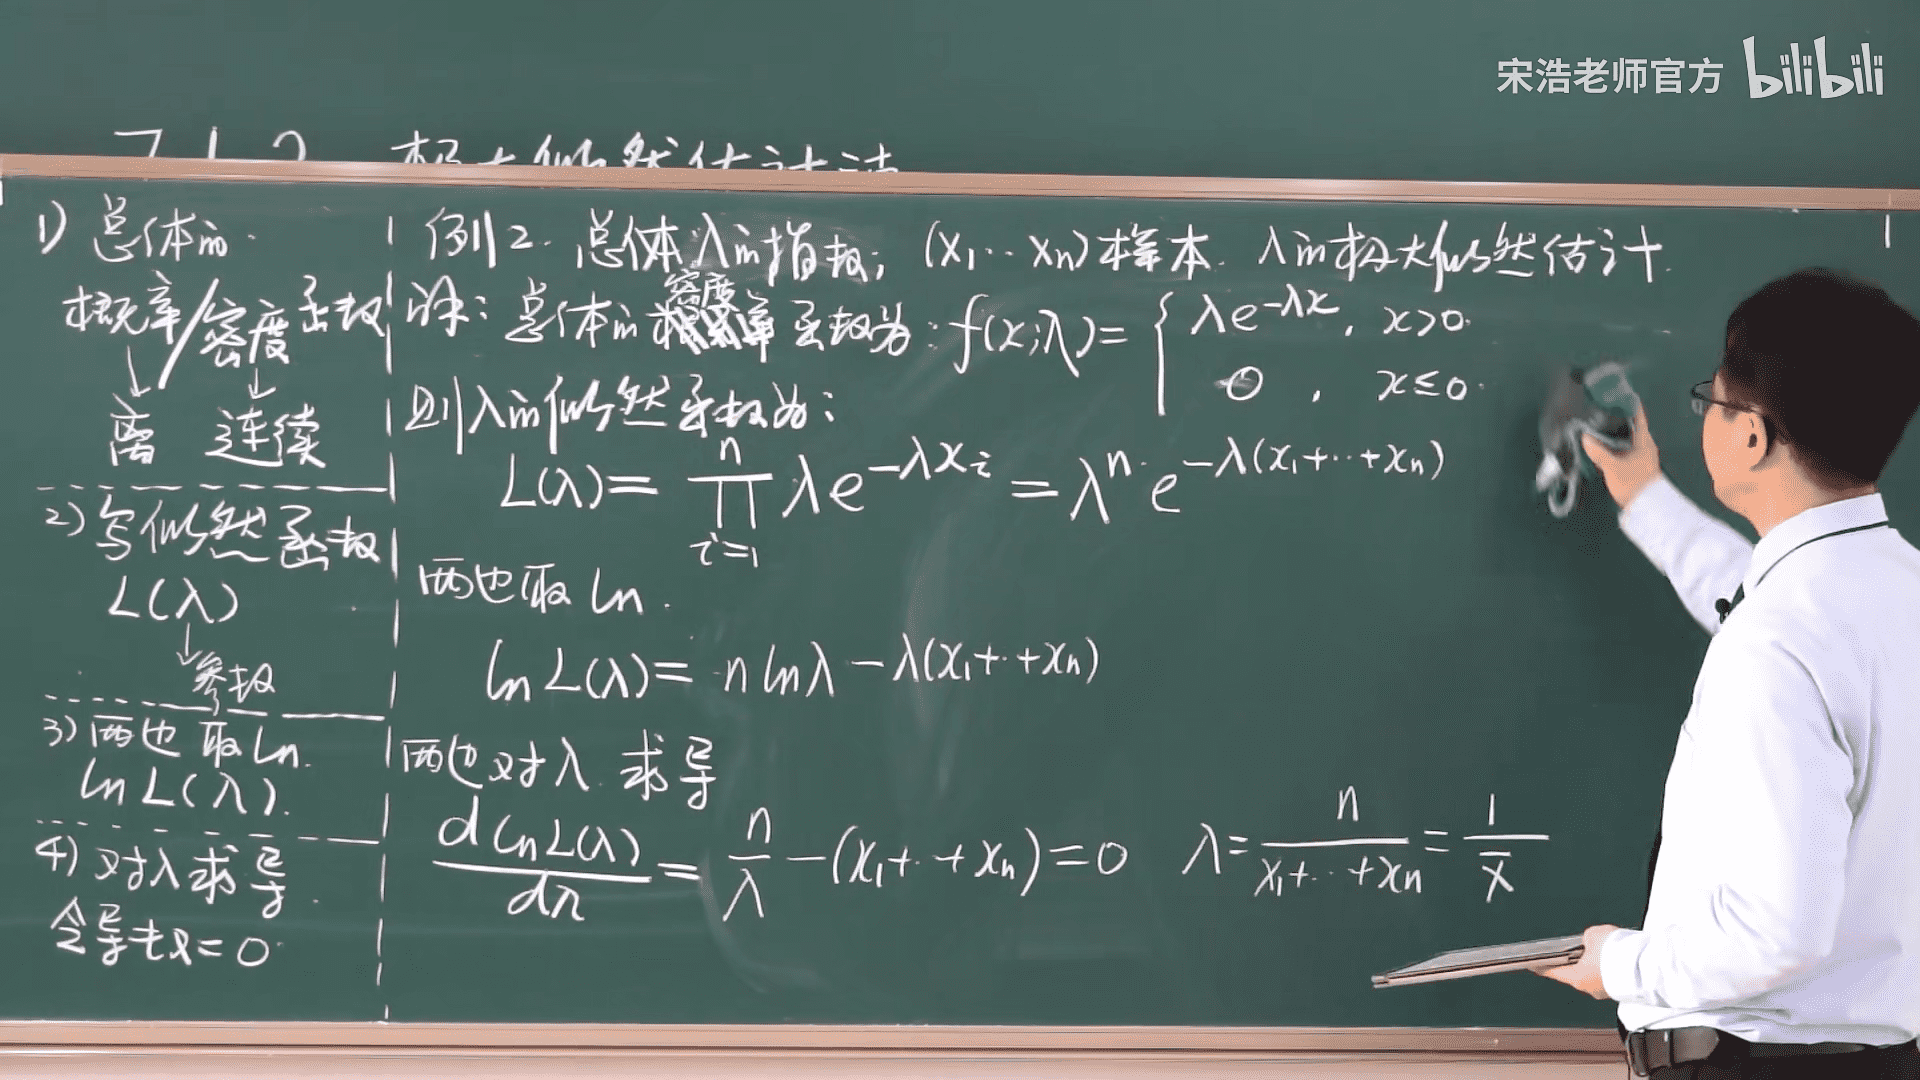 宋浩老师官方 bilibili
7.1.2 极大似然估计法
1) 总体的
概率/密度函数
↓ ↓
离 连续
2) 写似然函数
L(λ)
↓参数
3) 两边取ln.
ln L(λ).
4) 对λ求导.
令导数=0.
例2. 总体λ的指数, (x₁…xₙ)样本. λ的极大似然估计.
解: 总体的密度函数为: f(x;λ)= { λe^{-λx}, x>0.
0, x≤0.
则λ的似然函数为:
L(λ)= ∏_{i=1}^{n} λe^{-λx_i} = λⁿ e^{-λ(x₁+…+xₙ)}
两边取ln.
ln L(λ)= n lnλ - λ(x₁+…+xₙ)
两边对λ求导
d ln L(λ)/dλ = n/λ - (x₁+…+xₙ)=0 λ= n/(x₁+…+xₙ) = 1/x̄